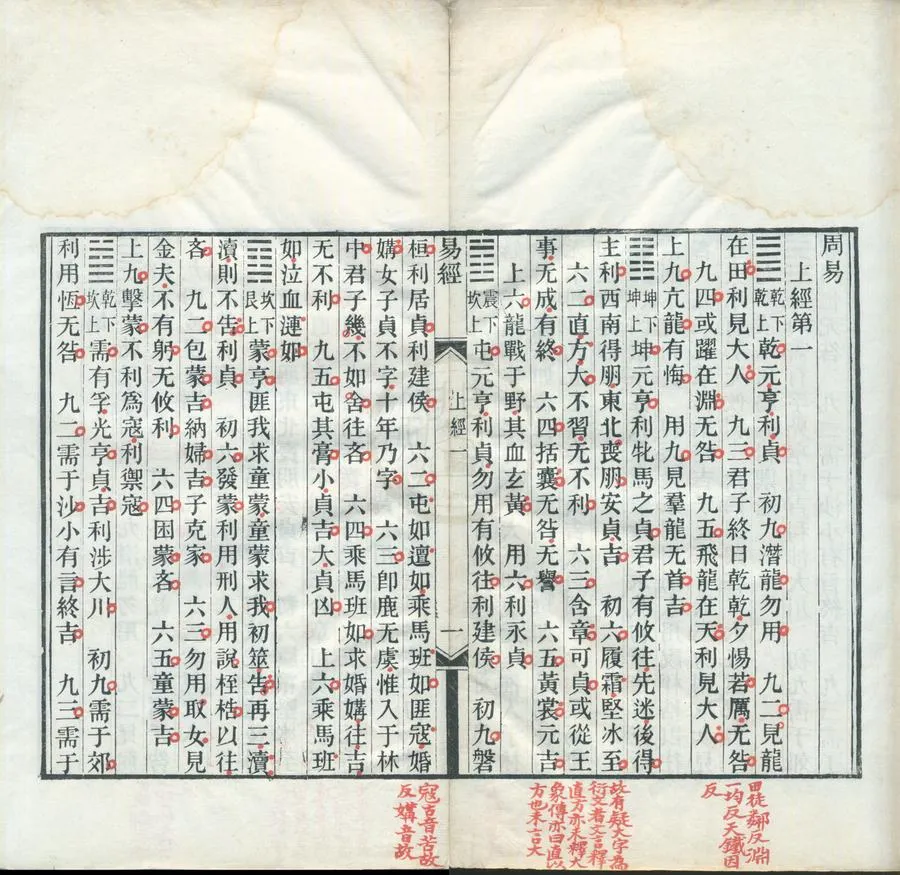 周易
上經第一
䷀乾下乾上乾元亨利貞　初九潛龍勿用　九二見龍
在田利見大人　九三君子終日乾乾夕惕若厲无咎
九四或躍在淵无咎　九五飛龍在天利見大人
上九亢龍有悔　用九見羣龍无首吉
䷁坤下坤上坤元亨利牝馬之貞君子有攸往先迷後得
主利西南得朋東北喪朋安貞吉　初六履霜堅冰至
六二直方大不習无不利　六三含章可貞或從王
事无成有終　六四括囊无咎无譽　六五黃裳元吉
上六龍戰于野其血玄黃　用六利永貞
䷂震下坎上屯元亨利貞勿用有攸往利建侯　初九磐
易經　上經一　一
桓利居貞利建侯　六二屯如邅如乘馬班如匪寇婚
媾女子貞不字十年乃字　六三卽鹿无虞惟入于林
中君子幾不如舍往吝　六四乘馬班如求婚媾往吉
无不利　九五屯其膏小貞吉大貞凶　上六乘馬班
如泣血漣如
䷃坎下艮上蒙亨匪我求童蒙童蒙求我初筮告再三瀆
瀆則不告利貞　初六發蒙利用刑人用說桎梏以往
吝　九二包蒙吉納婦吉子克家　六三勿用取女見
金夫不有躬无攸利　六四困蒙吝　六五童蒙吉
上九擊蒙不利爲寇利禦寇
䷄乾下坎上需有孚光亨貞吉利涉大川　初九需于郊
利用恆无咎　九二需于沙小有言終吉　九三需于
田徒鄰反淵
一均反天鐵因
反
故有疑大字為
衍文者文言釋
直方亦未釋大
象傳亦曰直以
方也未言大
寇古音苦故
反媾音故